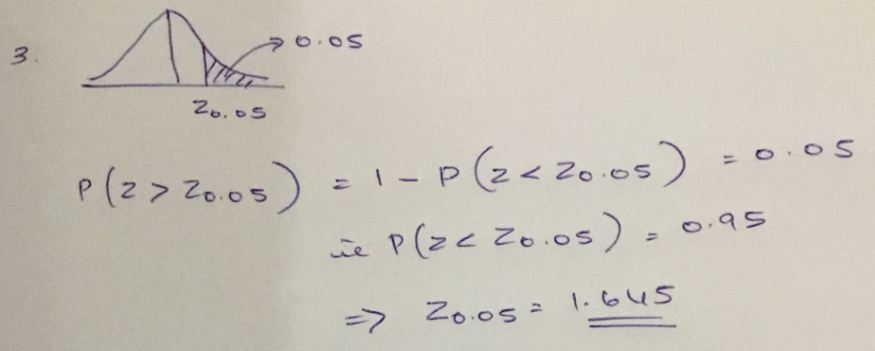 3.
0.05
Z0.05
P(Z > Z0.05) = 1 - P(Z < Z0.05) = 0.05
ie P(Z < Z0.05) = 0.95
=> Z0.05 = 1.645